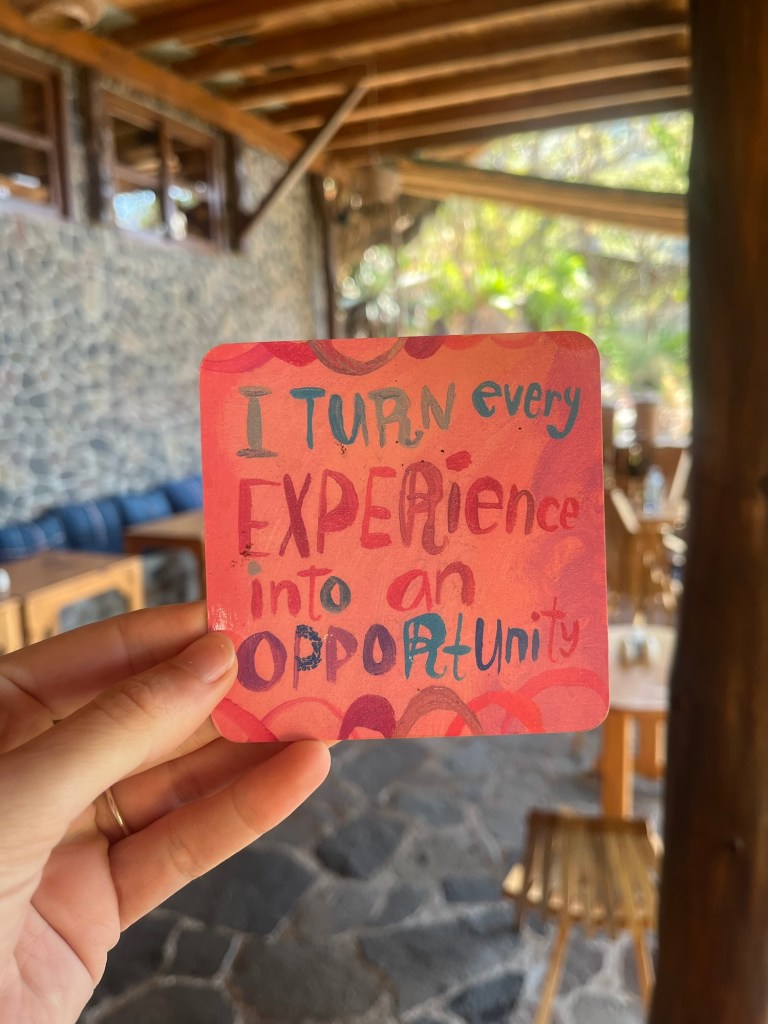 I TURN every
EXPERience
into an
OPPORtunity